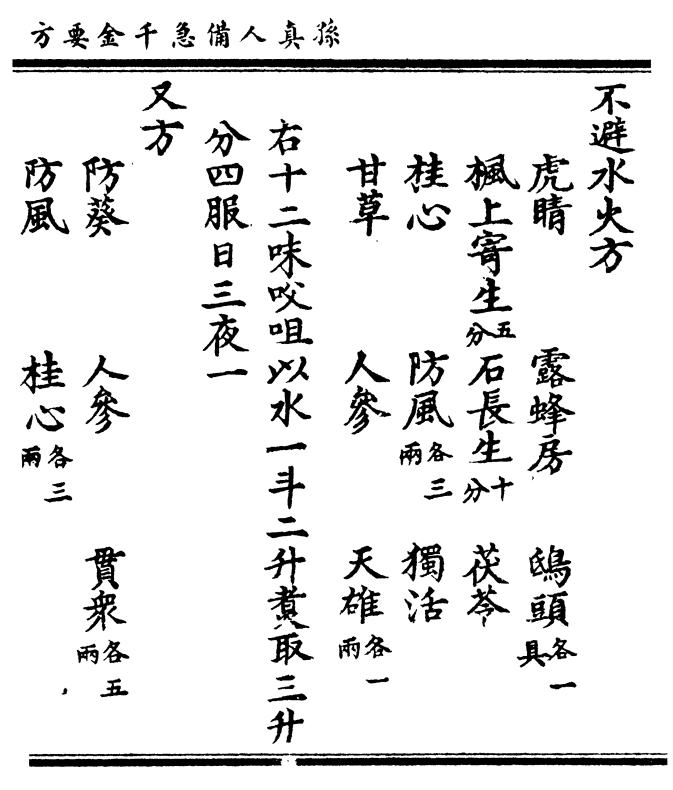 孫真人備急千金要方
不避水火方
虎睛 露蜂房 鴟頭各一具
楓上寄生五分 石長生十分 茯苓
桂心 防風各三兩 獨活
甘草 人參 天雄各一兩
右十二味㕮咀以水一斗二升煑取三升
分四服日三夜一
又方
防葵 人參 貫衆各五兩
防風 桂心各三兩